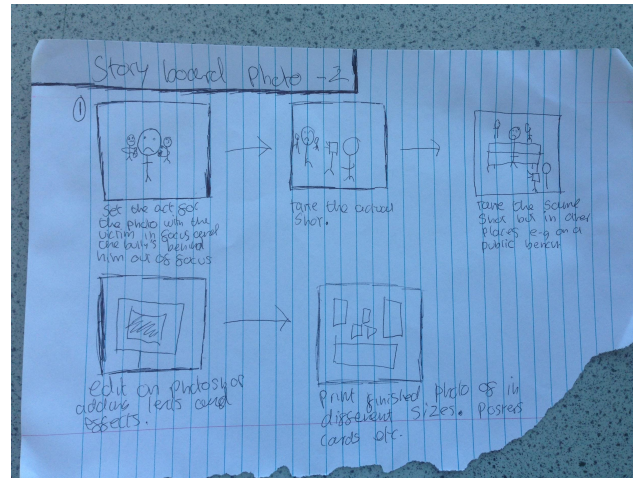 Story board Photo -2
1
Set the act for
the photo with the
victim in focus and
the bully's behind
him out of focus
take the actual
shot.
take the same
shot but in other
places e-g on a
public bench
edit on photoshop
adding lens and
effects.
Print finished photo of in
different sizes. Posters
cards etc.